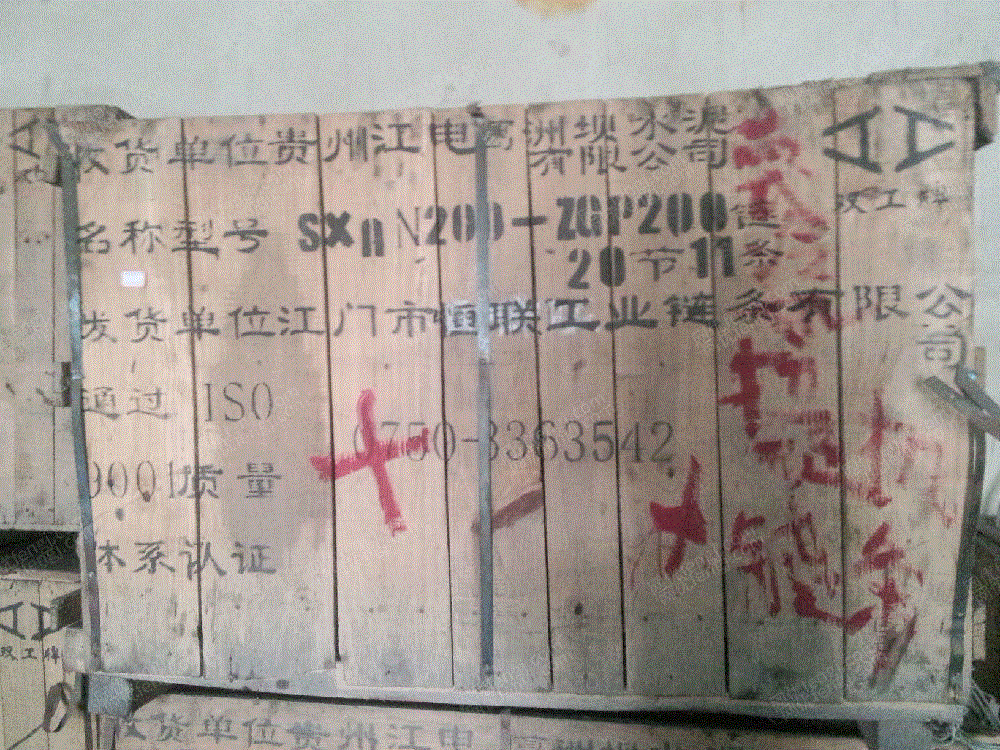 收货单位贵州江电葛洲坝水泥有限公司
名称型号 SXnN200-ZGP200链
20节11条
发货单位江门市恒联工业链条有限公司
双工牌
通过 ISO
9001质量
体系认证
0750-3363542
双工牌
收货单位贵州江电